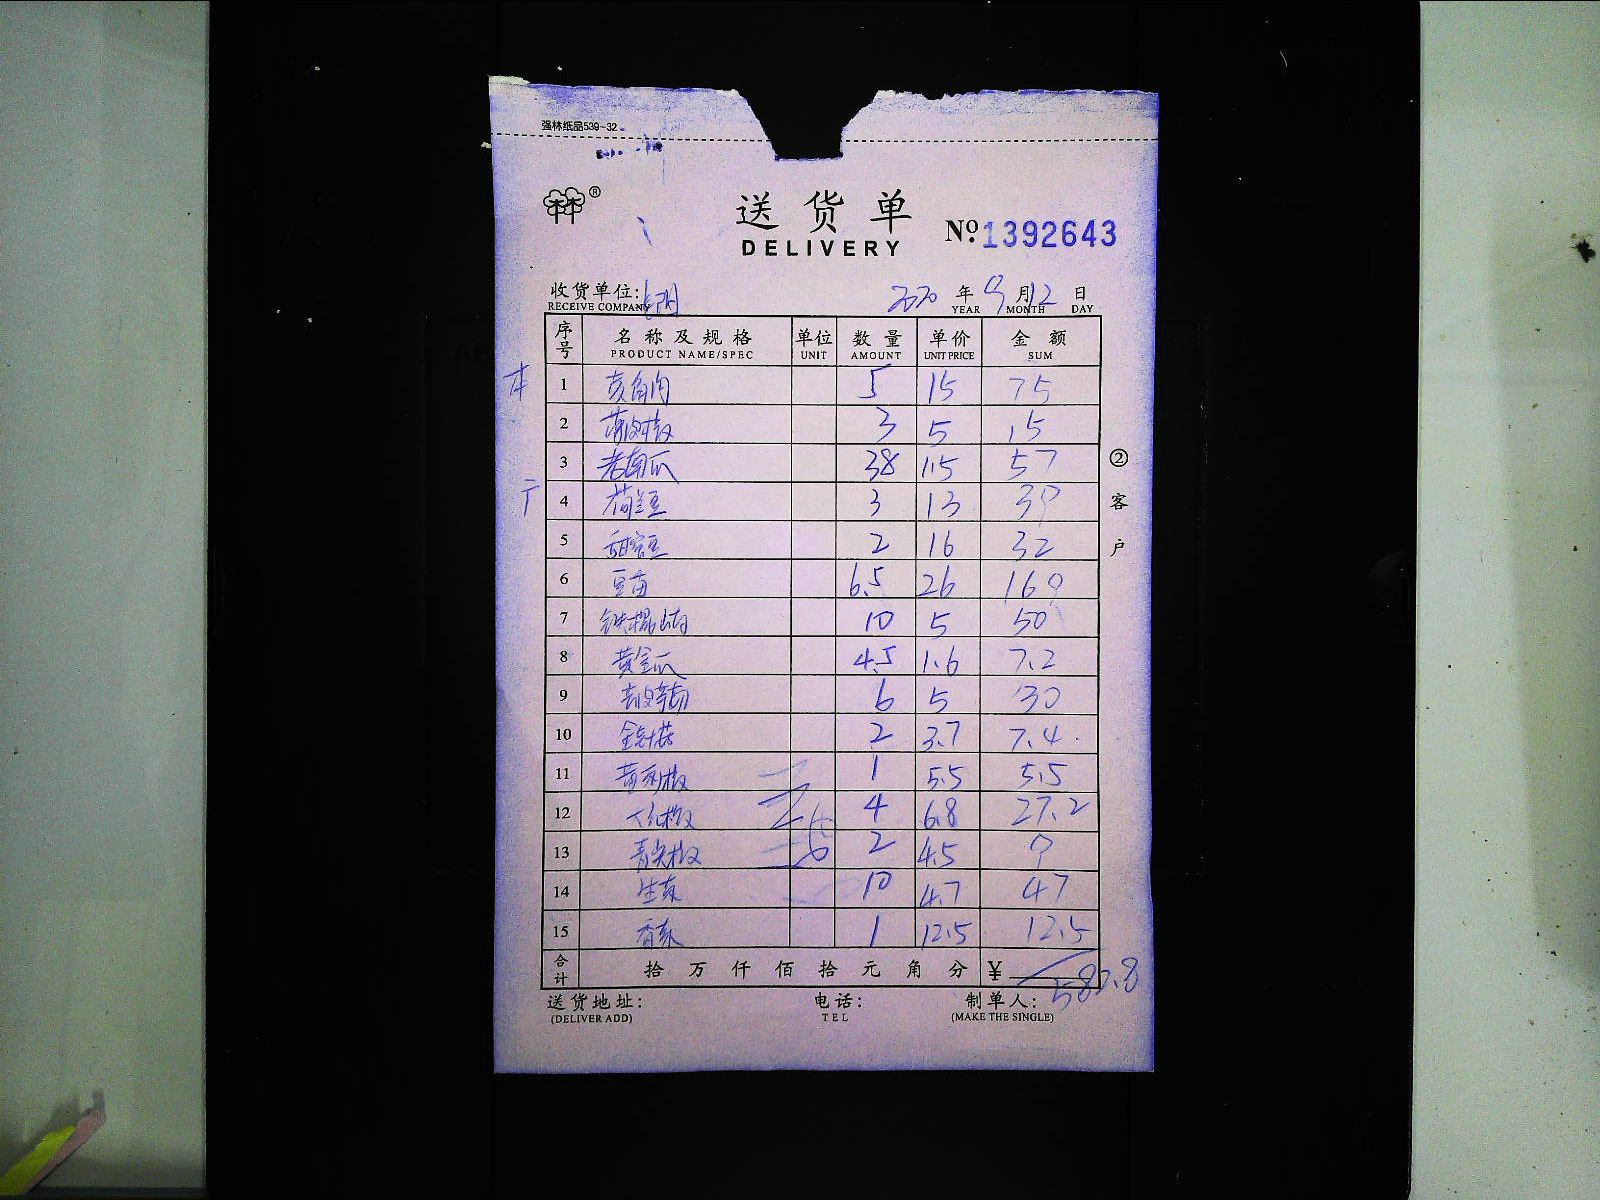 强林纸品539-32
林®
送货单
DELIVERY
№ 1392643
收货单位:
RECEIVE COMPANY
2020 年 9 月 12 日
YEAR MONTH DAY
序号 名称及规格 单位 数量 单价 金额
PRODUCT NAME/SPEC UNIT AMOUNT UNIT PRICE SUM
1 菱角肉 5 15 75
2 薄皮椒 3 5 15
3 老南瓜 38 1.5 57
4 荷兰豆 3 13 39
5 甜蜜豆 2 16 32
6 豆苗 6.5 26 169
7 铁棍山药 10 5 50
8 黄金瓜 4.5 1.6 7.2
9 6 5 30
10 金针菇 2 3.7 7.4
11 1 5.5 5.5
12 4 6.8 27.2
13 青尖椒 2 4.5 9
14 生菜 10 4.7 47
15 香菜 1 12.5 12.5
合计 拾万仟佰拾元角分 ¥ 582.8
②客户
送货地址: 电话: 制单人:
(DELIVER ADD) TEL (MAKE THE SINGLE)